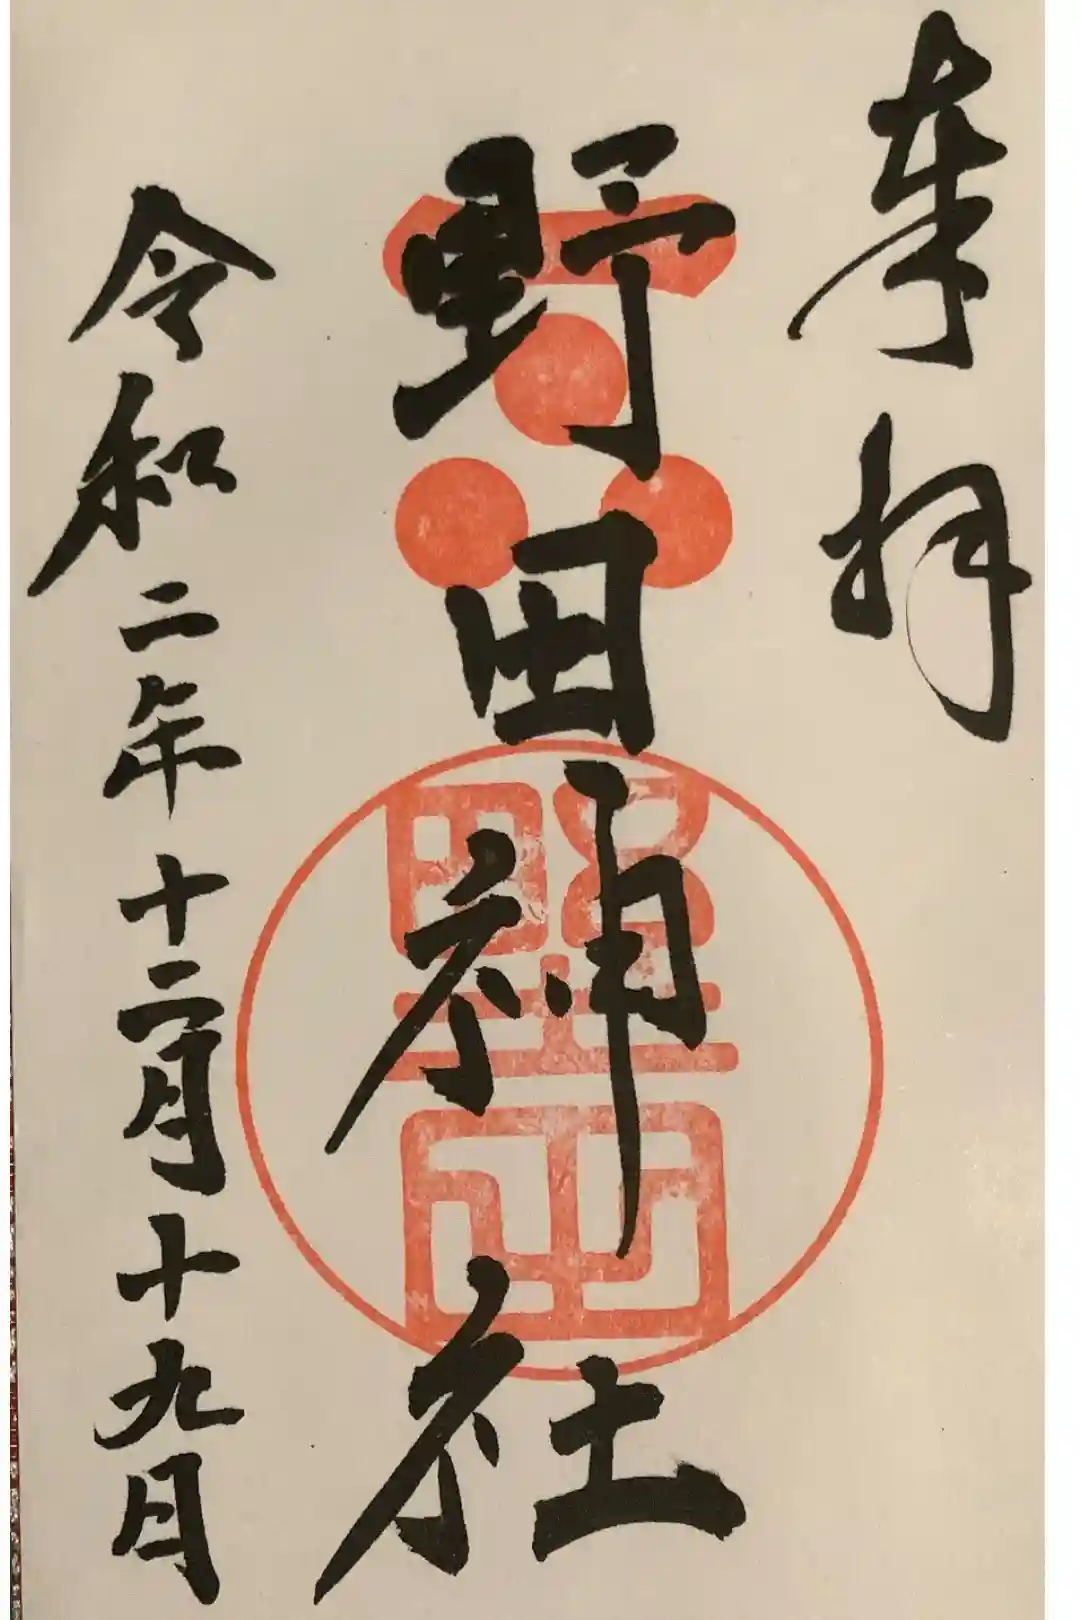 奉拝
野田神社
令和二年十二月十九日
野田